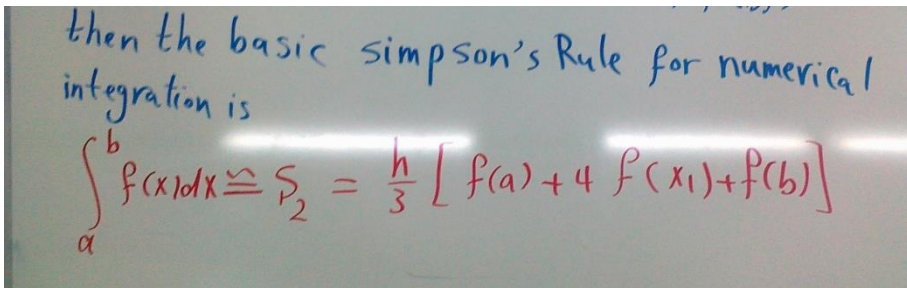 then the basic simpson's Rule for numerical
integration is
∫_a^b f(x)dx ≅ S_2 = h/3 [ f(a) + 4 f(x_1) + f(b) ]